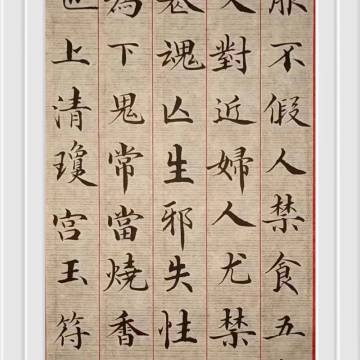 服不假人禁食五
又對近婦人尤禁
喪魂亾生邪失性
為下鬼常當燒香
也上清瓊宮玉符